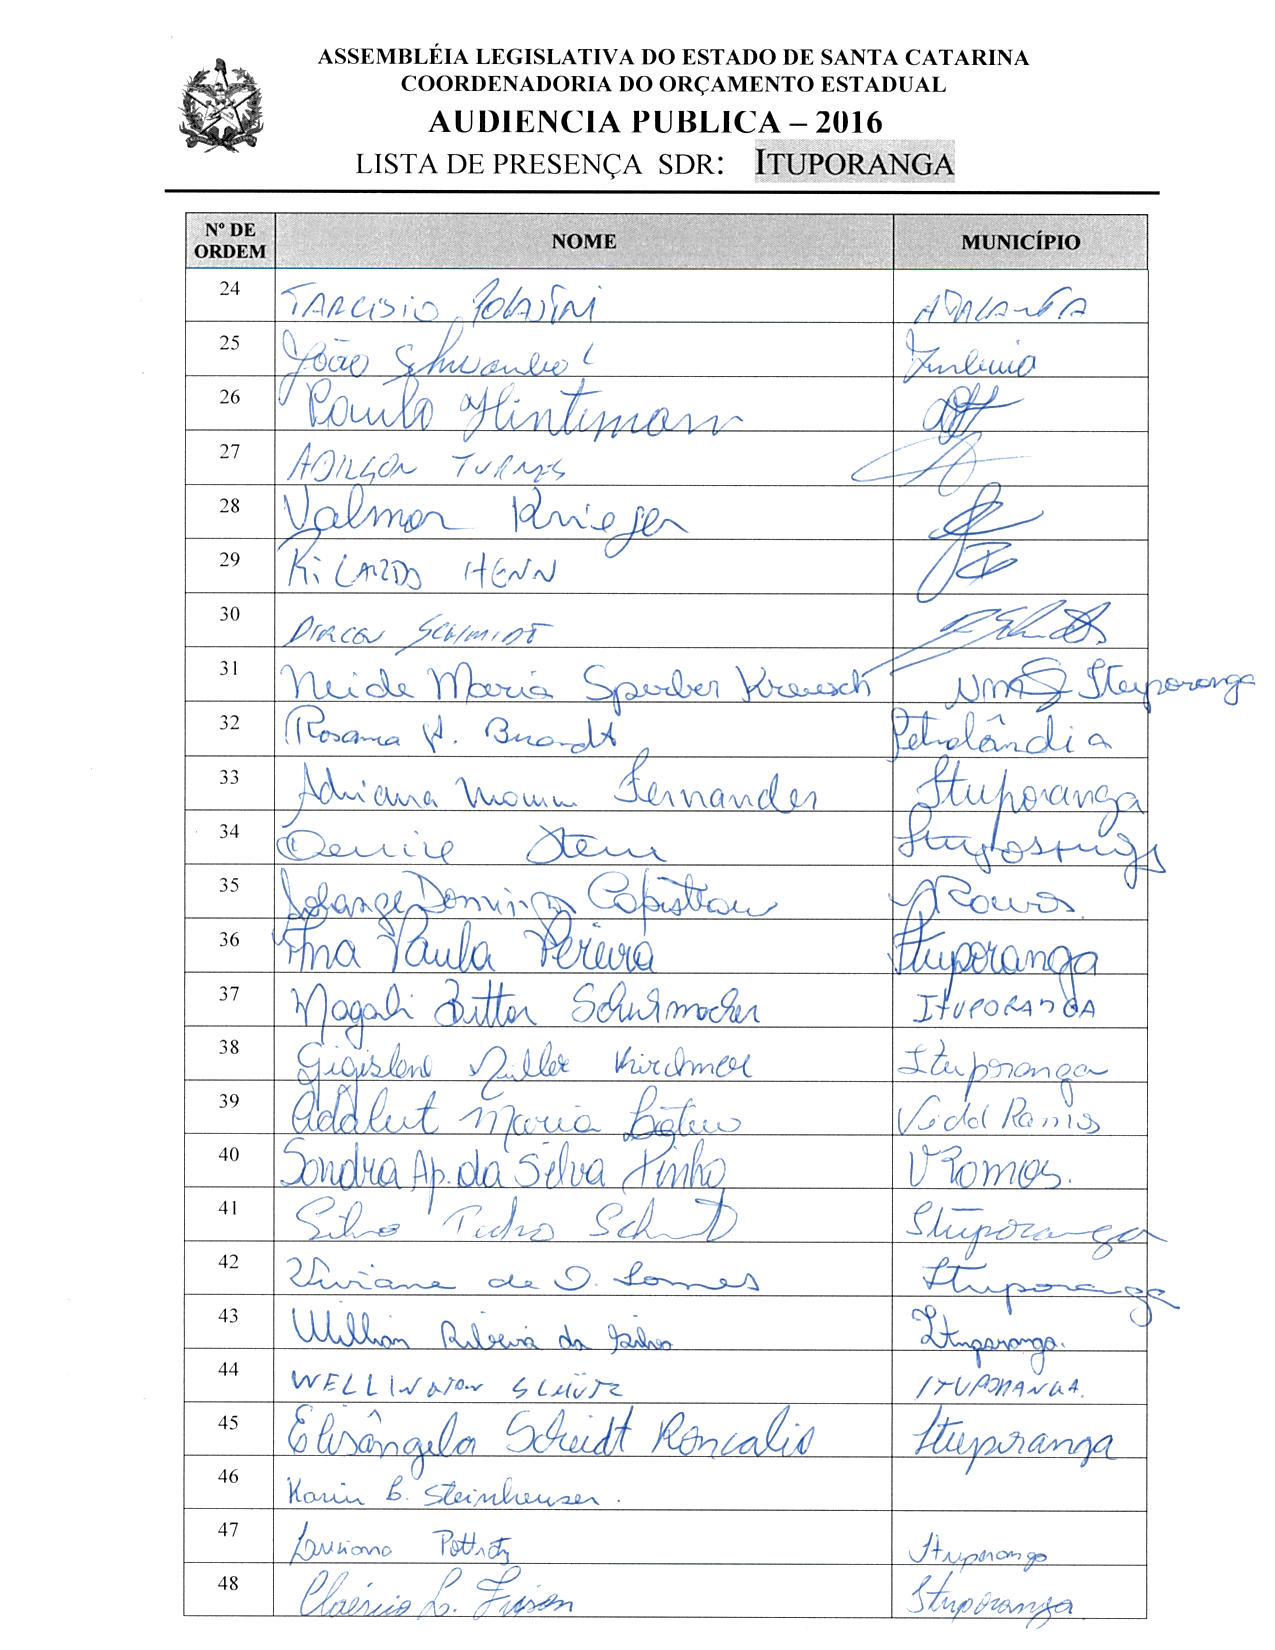 ASSEMBLÉIA LEGISLATIVA DO ESTADO DE SANTA CATARINA
COORDENADORIA DO ORÇAMENTO ESTADUAL
AUDIENCIA PUBLICA – 2016
LISTA DE PRESENÇA SDR: ITUPORANGA
Nº DE ORDEM NOME MUNICÍPIO
24 TARCISIO POLASTRI ATALANTA
25 João
26 Paulo Hintemann
27 ADILSON TURNES
28 Valmor Krieger
29 RICARDO HENN
30 DIRCEU SCHMIDT
31 Neide Maria Sperber Kreusch Ituporanga
32 Rosana A. Brandt Petrolândia
33 Adriana Momm Fernandes Ituporanga
34 Denise Stem Ituporanga
35 Solange Domingos Capistrano
36 Ana Paula Pereira Ituporanga
37 Magali Bitter Schurmacher ITUPORANGA
38 Gigislene Muller Kirchner Ituporanga
39 Maria Vidal Ramos
40 Sandra Ap. da Silva Pinho V Ramos.
41 Silvio Pedro Schmidt Ituporanga
42 Viviane de O. Gomes Ituporanga
43 Willian Ribeiro da Ituporanga.
44 WELLINGTON SCHÜTZ ITUPORANGA.
45 Elisângela Scheidt Roncalio Ituporanga
46 Karin B. Steinheuser.
47 Luciana Ituporanga
48 L. Frison Ituporanga